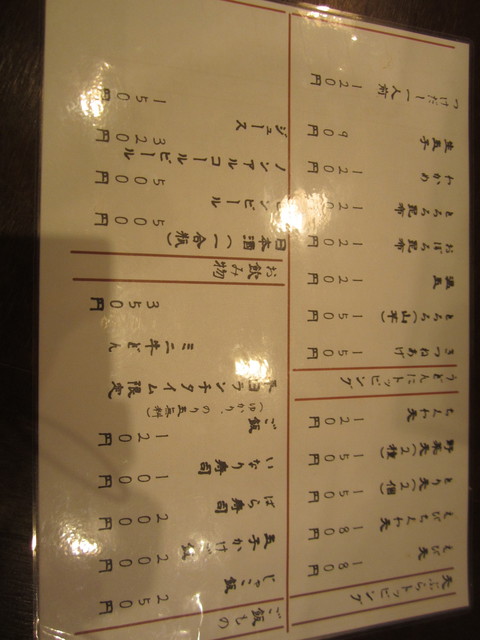 天ぷらトッピング
えび天 180円
えびちくわ天 180円
とり天(2個) 150円
野菜天(2種) 150円
ちくわ天 120円
うどんにトッピング
きつねあげ 150円
とろろ(山芋) 150円
温玉 120円
おぼろ昆布 120円
とろろ昆布 120円
わかめ 120円
生玉子 90円
つけだし一人前 120円
ご飯もの
じゃこ飯 250円
玉子かけご飯 200円
ばら寿司 200円
いなり寿司 100円
ご飯 120円
(ゆかり、のり玉無料)
平日ランチタイム限定
ミニ牛どん 350円
お飲み物
日本酒(一合瓶) 500円
ンビール 500円
ノンアルコールビール 320円
ジュース 150円